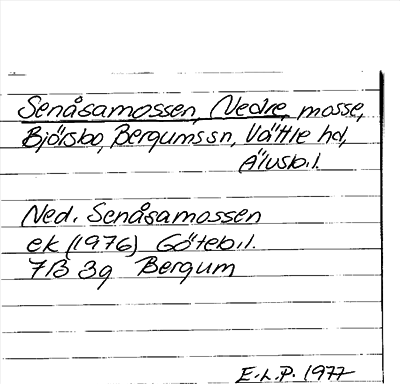 Senåsamossen, Nedre, mosse,
Björsbo, Bergums sn, Vättle hd,
Älvsb.l.
Ned. Senåsamossen
ek (1976) Göteb.l.
7B 3g Bergum
E.L.P. 1977